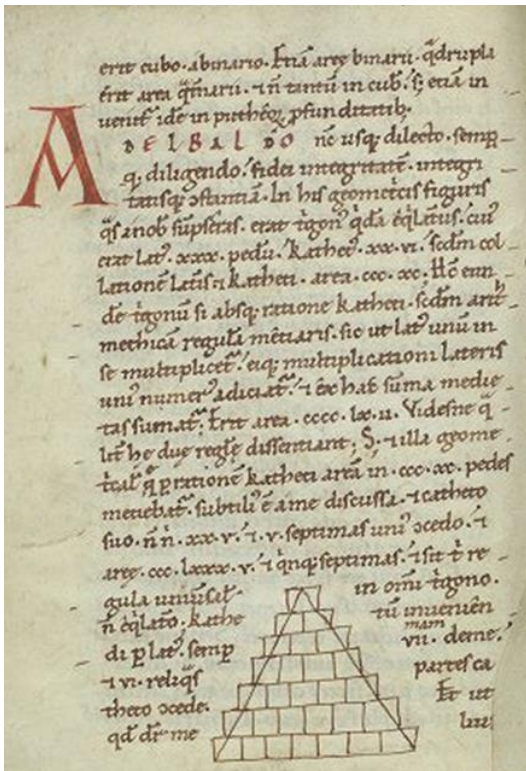 erit cubo · abinario · Etiā aręę binarii · q̄drupla
erit area q̄t̄narii · ⁊ n̄ tantū in cub· sꝫ etiā in
uenit᷑ idē in
A DELBALDO nc̄ usqꝫ dilecto · semp
qꝫ diligendo · fidei integritatē · integri
tatisqꝫ ɔstantiā · In his geometricis figuris
erat lat᷒ · xxx · pedū · kathet᷒ · xx · vi · scd̄m col
lationē latis ⁊ katheti · area · ccc · xc · Hc̄ eun
dē t̓gonū si absqꝫ ratione katheti · scd̄m arit
methicā regulā mētiaris · sic ut lat᷒ unū in
se multiplicet᷑ · eiqꝫ multiplicationi lateris
uni᷒ numer᷒ adiciat᷑ · ⁊ ex hac sūma medie
tas sumat᷑ · Erit area · cccc · lx · v · Videsne q̄
lit̄ hę duę regłę dissentiant · Sꝫ ⁊ illa geome
t̓calis q̄ p rationē katheti areā in · ccc · xc · pedes
metiebat᷑ · subtili᷒ ē a me discussa · ⁊ catheto
suo · n̄ n̄ · xx · v · ⁊ · v · septimas uni᷒ ɔcedo · ⁊
aręę · ccc · lxxx · v · ⁊ q̓nqꝫ septimas · ⁊ sit t̄ re
gula uniūsal᷒ in om̄i t̓gono ·
n̄ ęq̓lato · kathe tū inueniēn
di p lat᷒ · semp · vii · mam deme ·
⁊ vi · reliq̓s partes ca
theto ɔcede · Et ut
qd̄ dr̄ me li᷒